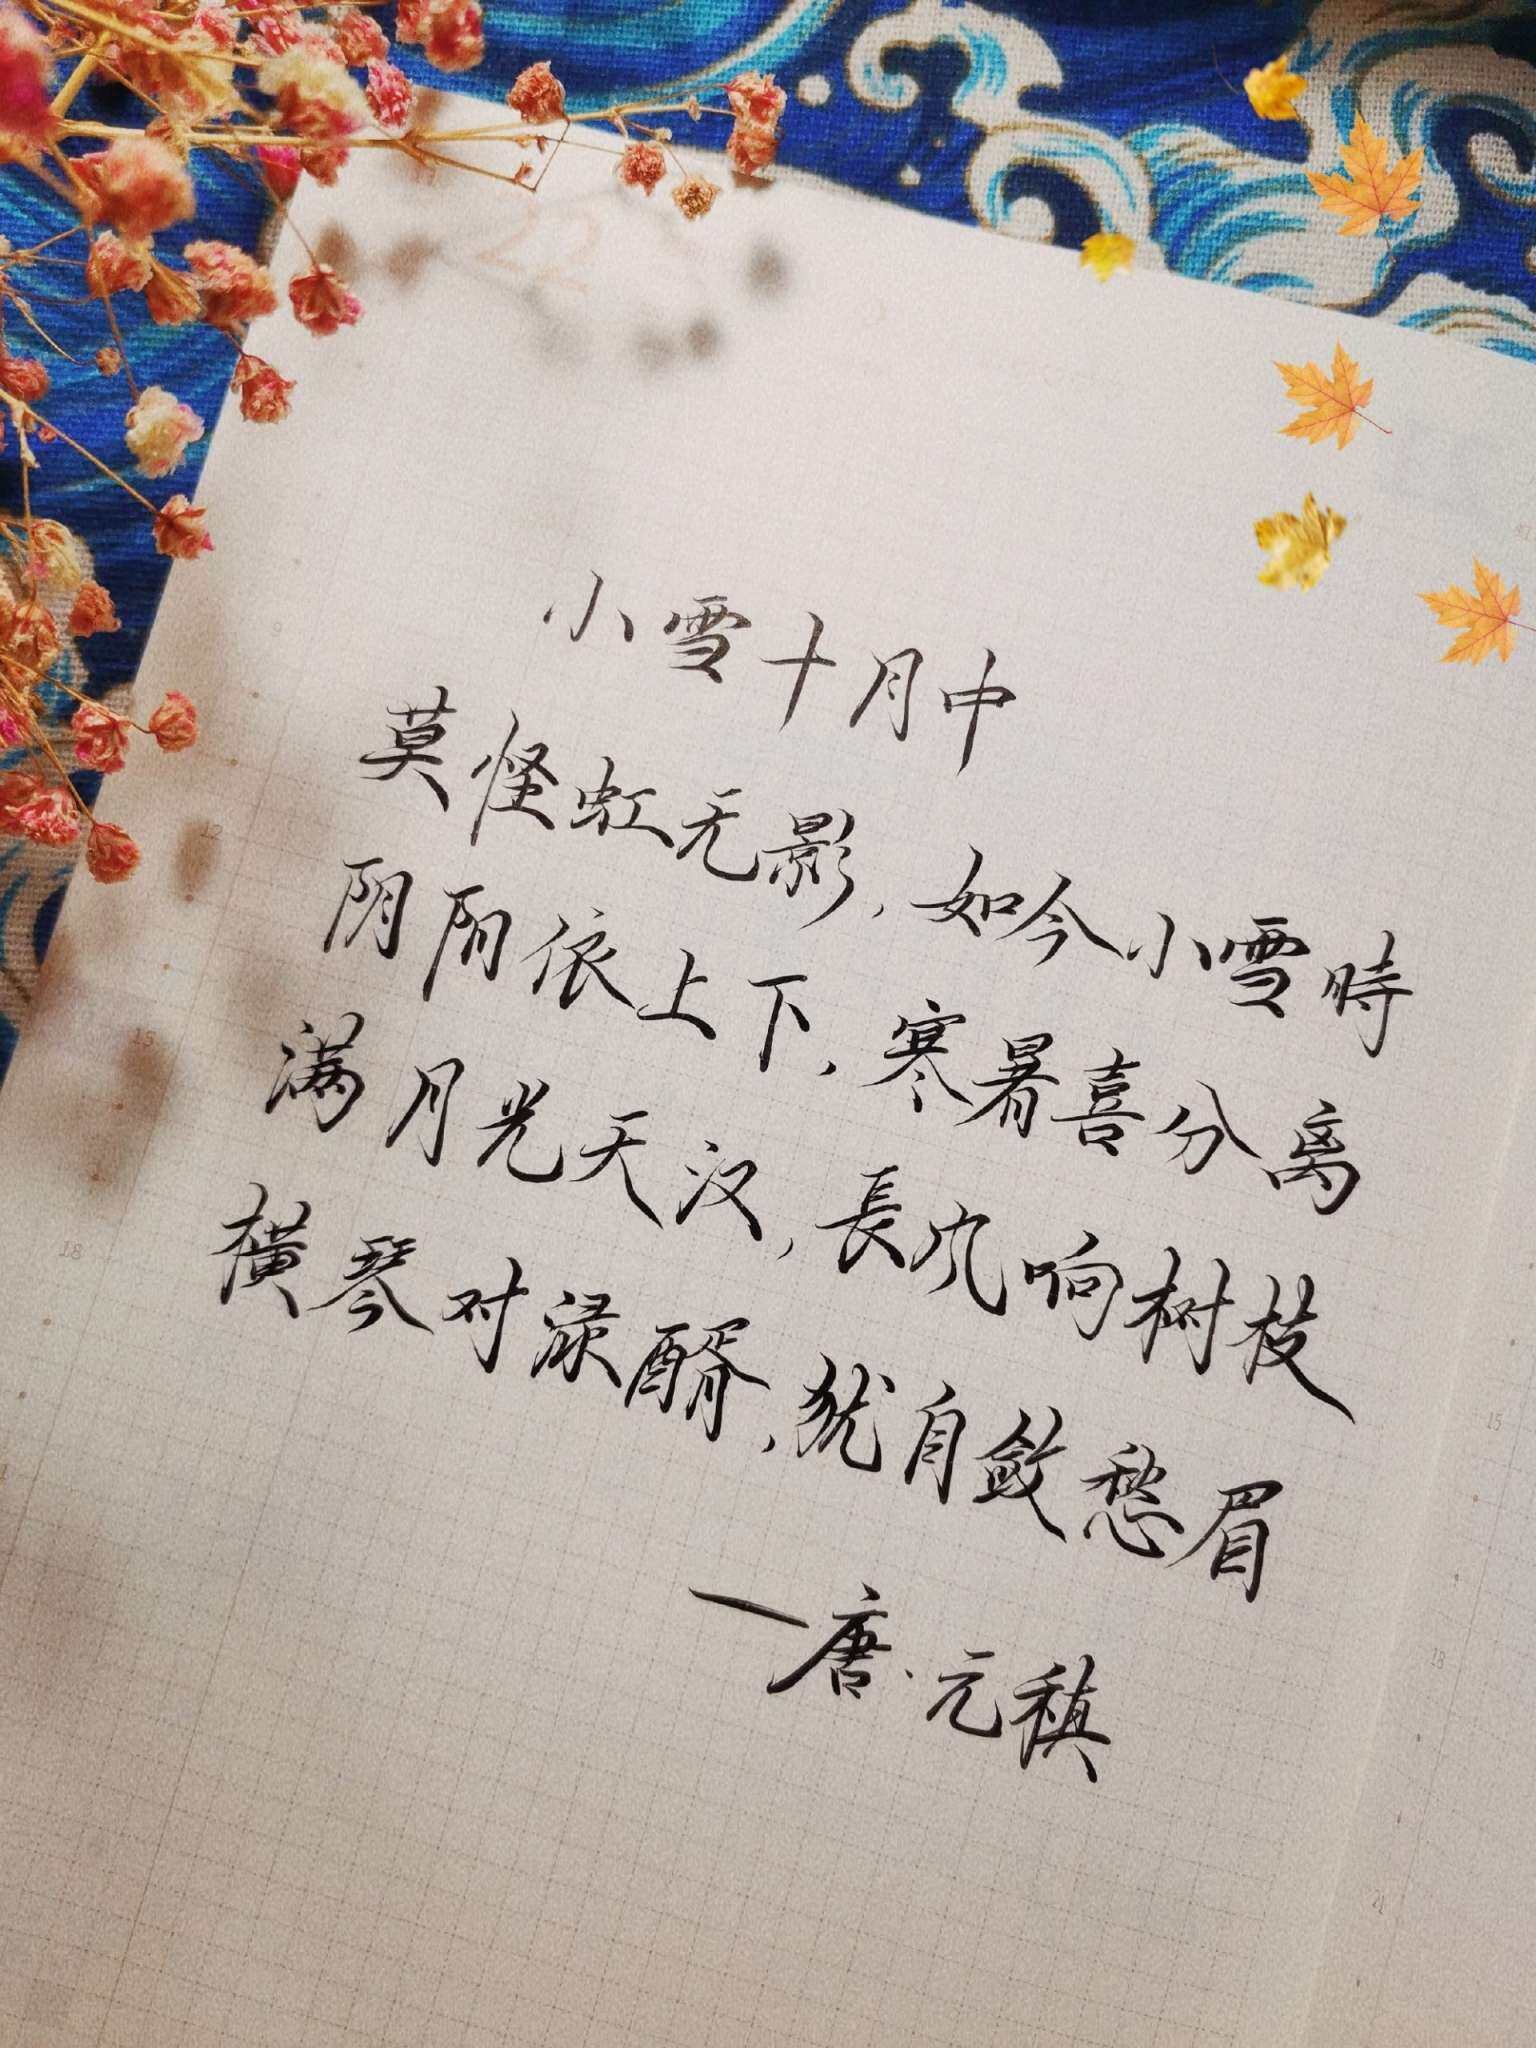 22
小雪十月中
莫怪虹无影，如今小雪時
阴阳依上下，寒暑喜分离
满月光天汉，長风响树枝
横琴对渌醑，犹自敛愁眉
—唐·元稹
12
15
18
15
18
21